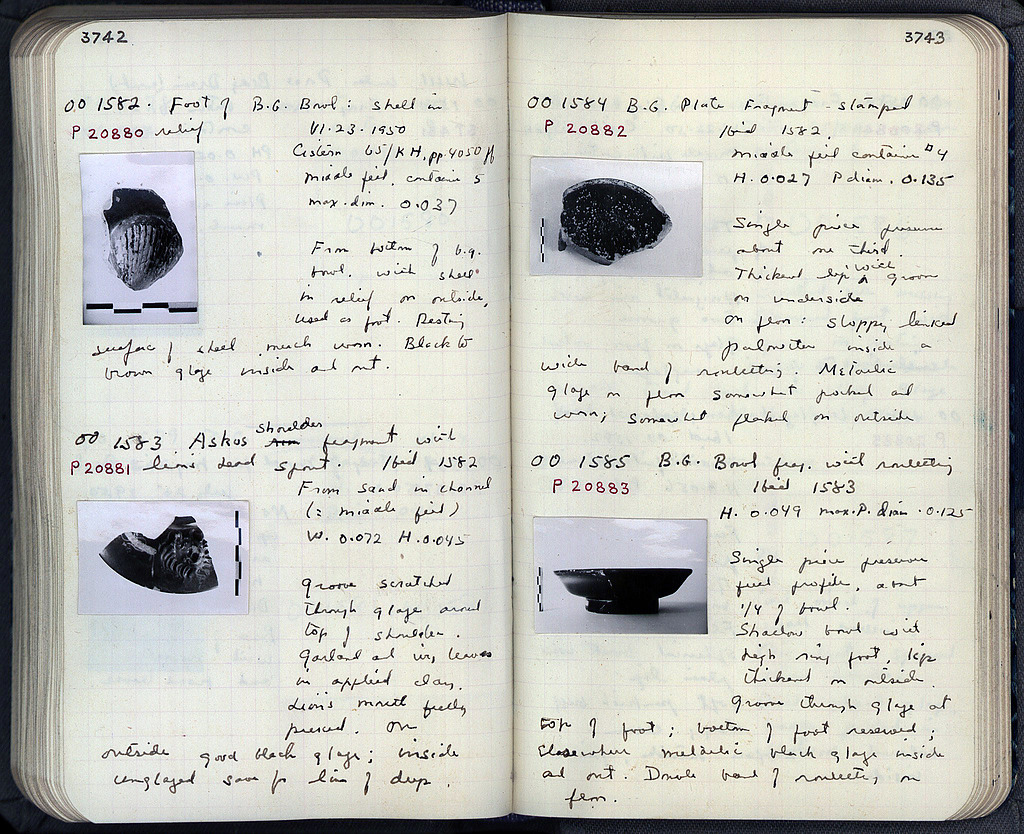 3742
OO 1582. Foot of B.G. Bowl: shell in
P 20880 relief VI.23.1950
Cistern 65/KH, pp. 4050 ff
middle fill, container 5
max. dim. 0.037
From bottom of b.g.
bowl, with shell
in relief on outside,
used as foot. Resting
surface of shell much worn. Black to
brown glaze inside and out.
OO 1583 Askos shoulder fragment with
P 20881 lion's head spout. Ibid 1582
From sand in channel
(= middle fill)
W. 0.072 H. 0.045
Groove scratched
through glaze around
top of shoulder.
Garland of ivy leaves
in applied clay.
Lion's mouth fully
pierced. On
outside good black glaze; inside
unglazed save for line of drip.
3743
OO 1584 B.G. Plate Fragment - stamped
P 20882 Ibid 1582.
middle fill container #4
H. 0.027 P. diam. 0.135
Single piece preserves
about one third.
Thickened lip with groove
on underside
On floor: sloppy linked
palmettes inside a
wide band of rouletting. Metallic
glaze on floor somewhat pocked and
worn; somewhat flaked on outside
OO 1585 B.G. Bowl frag. with rouletting
P 20883 Ibid 1583
H. 0.049 max. P. diam. 0.125
Single piece preserves
full profile, about
1/4 of bowl.
Shallow bowl with
high ring foot, lip
thickened on outside.
Groove through glaze at
top of foot; bottom of foot reserved;
elsewhere metallic black glaze inside
and out. Double band of rouletting on
floor.